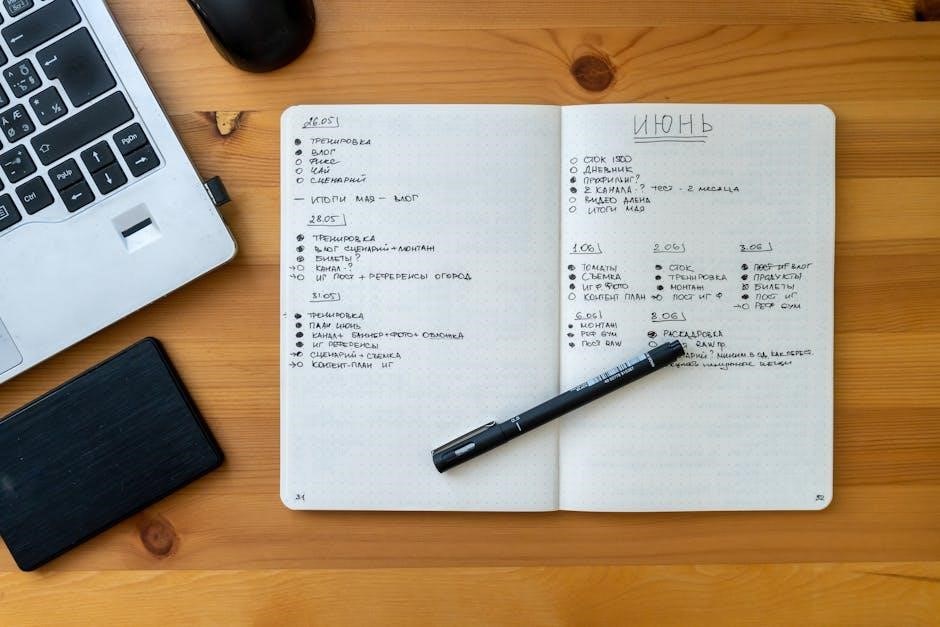 26.05
ТРЕНИРОВКА
ВЛОГ
ФИКС
ЧАЙ
СЦЕНАРИЙ
— ИТОГИ МАЯ — ВЛОГ
28.05
ТРЕНИРОВКА
ВЛОГ СЦЕНАРИЙ + МОНТАЖ
БИЛЕТЫ?
КАНАЛ -?
ИГ ПОСТ + РЕФЕРЕНСЫ ОГОРОД
31.05
ТРЕНИРОВКА
ПЛАН ИЮНЬ
КАНАЛ + БАННЕР + ФОТО + ОБЛОЖКА
ИГ РЕФЕРЕНСЫ
СЦЕНАРИЙ + СЪЕМКА
КОНТЕНТ-ПЛАН ИГ
31
ИЮНЬ
СТОК 1500
ДНЕВНИК
ПРОФИЛЬ ИГ?
2 КАНАЛА -? ТЕСТ - 2 МЕСЯЦА
ВИДЕО
ИТОГИ МАЯ
1.06
ТОМАТЫ
СЪЕМКА
ИГ Ф ФОТО
КОНТЕНТ ПЛАН
2.06
СТОК
ТРЕНИРОВКА
МОНТАЖ
ПОСТ ИГ Ф
3.06
ПОСТ ИГ ВЛОГ
ПРОДУКТЫ
БИЛЕТЫ
ПОСТ ИГ
РЕФ GYM
6.06
МОНТАЖ
РЕФ GYM
ПОСТ RAW
8.06
РАСКАДРОВКА
RAW
32
Ctrl
PgUp
PgDn